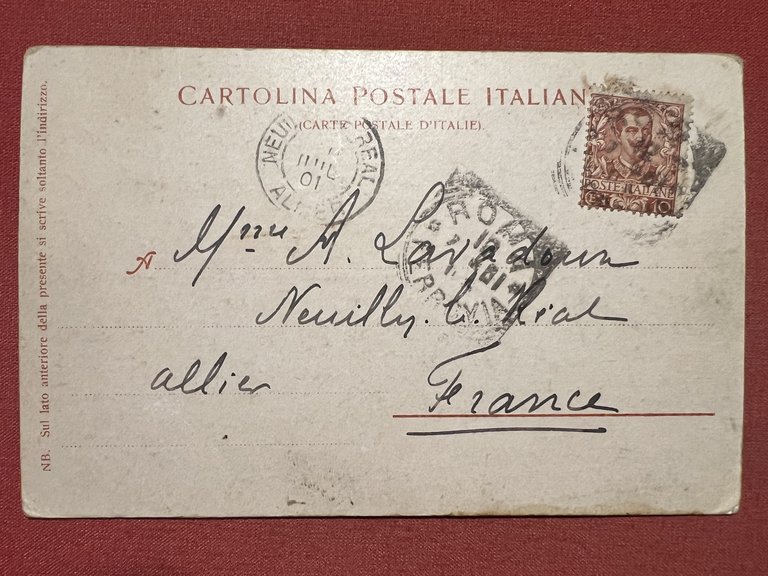 CARTOLINA POSTALE ITALIAN
(CARTE POSTALE D'ITALIE).
POSTE ITALIANE
10
NEUI REAL
JUIL
01
ALLIER
ROMA
FERROVIA
A Mme A. Lavadoun
Neuilly. le. Réal
allier
France
NB. Sul lato anteriore della presente si scrive soltanto l'indirizzo.